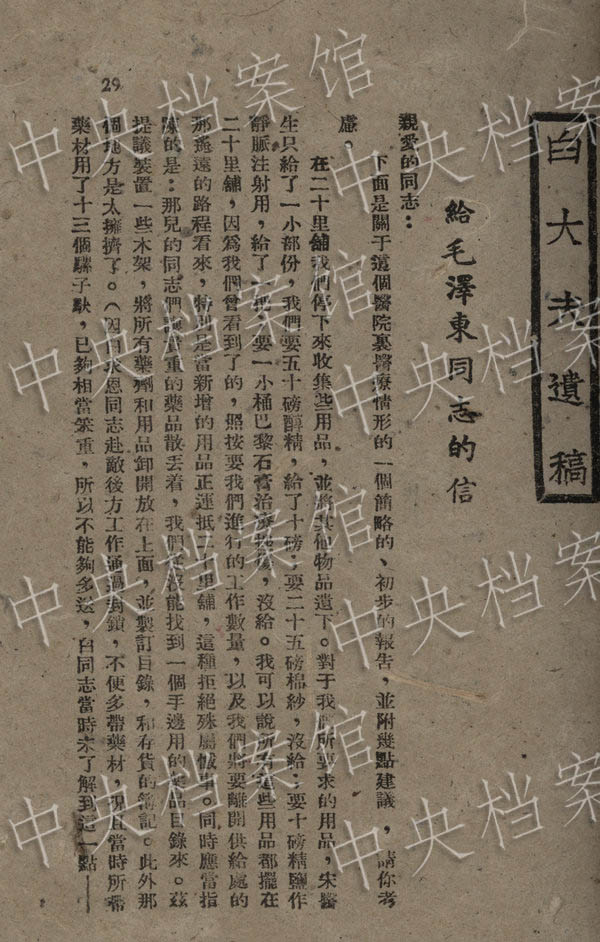 白大夫遺稿
給毛澤東同志的信
親愛的同志：
下面是關于這個醫院裏醫療情形的一個簡略的、初步的報告，並附幾點建議，請你考
慮。
在二十里舖我們停下來收集些用品，並將其他物品遺下。對于我們所要求的用品，宋醫
生只給了一小部份，我們要五十磅醇精，給了十磅；要二十五磅棉紗，沒給；要十磅精鹽作
靜脈注射用，給了一把；要一小桶巴黎石膏治療，沒給。我可以說所有這些用品都擺在
二十里舖，因爲我們曾看到了的，照按要我們進行的工作數量，以及我們將要離開供給處的
那遙遠的路程看來，特別是當新增的用品正運抵二十里舖，這種拒絕殊屬憾事。同時應當指
陳的是：那兒的同志們貴重的藥品散丟着，我們沒能找到一個手邊用的藥品目錄來。茲
提議裝置一些木架，將所有藥劑和用品卸開放在上面，並製訂目錄，和存貨的簿記。此外那
個地方是太擁擠了。（因白求恩同志赴敵後方工作通過封鎖，不便多帶藥材，況且當時所帶
藥材用了十三個騾子馱，已夠相當笨重，所以不能夠多送，白同志當時未了解到這一點——
29
中央档案馆
中央档案馆
中央档案馆
中央档案馆
中央档案馆
中央档案馆
中央档案馆
中央档案馆